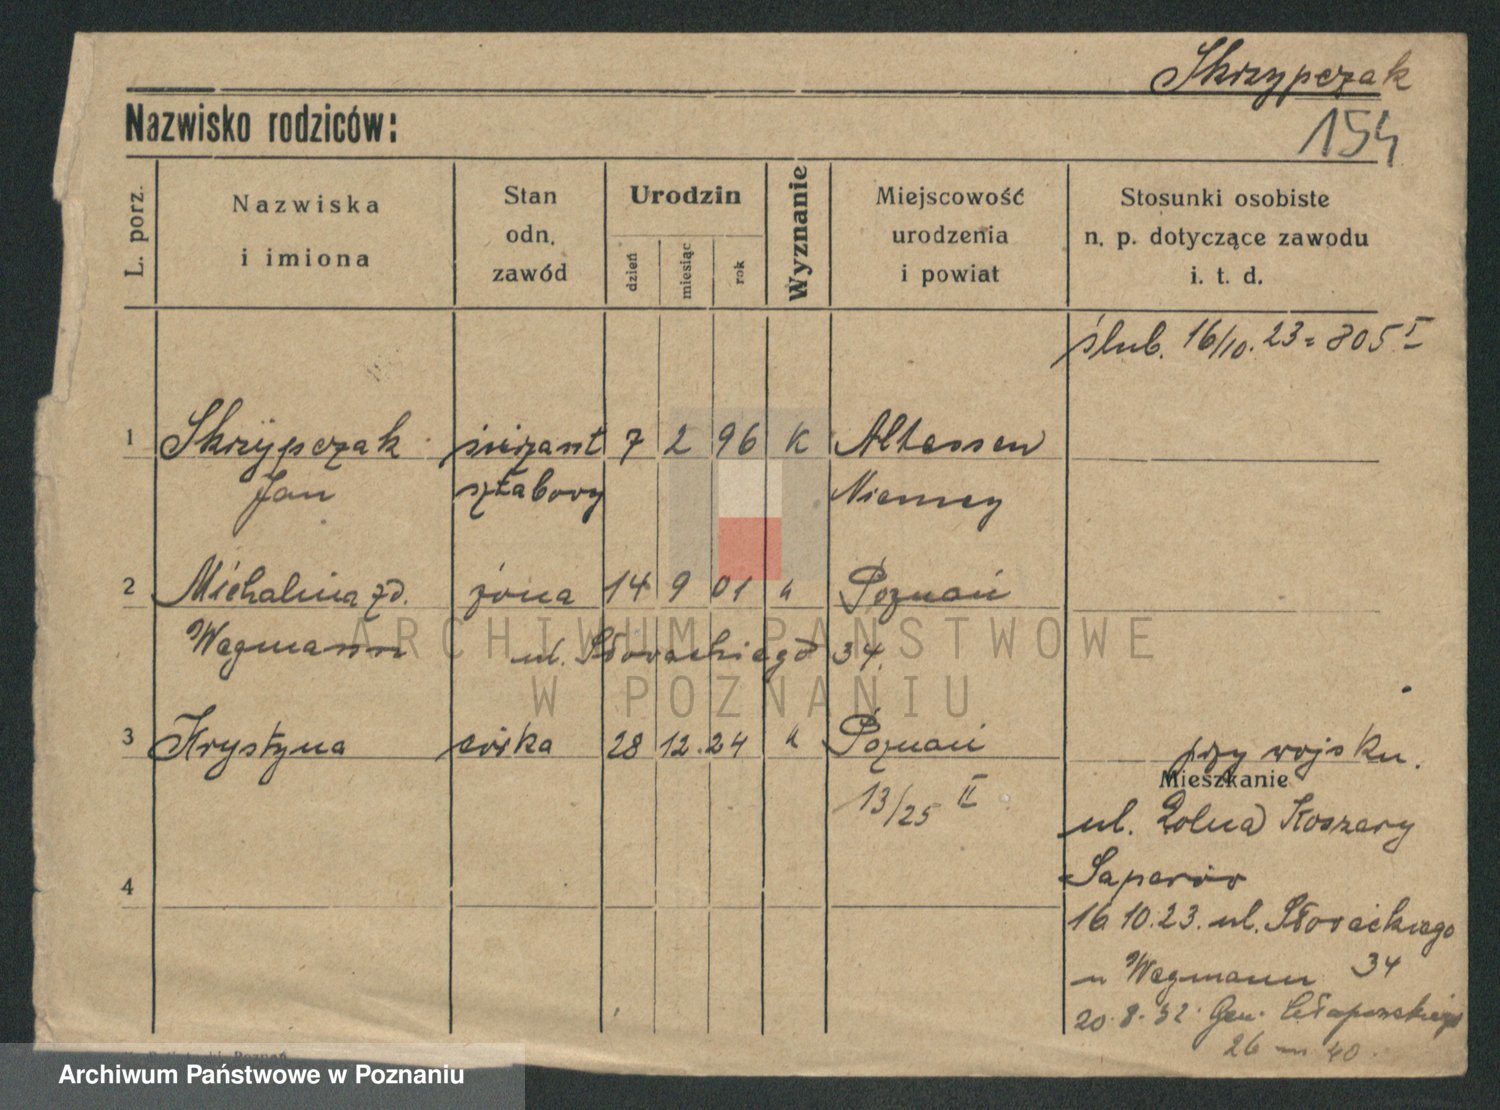 Skrzypczak
Nazwisko rodziców:
154
L. porz.
Nazwiska
i imiona
Stan
odn.
zawód
Urodzin
dzień
miesiąc
rok
Wyznanie
Miejscowość
urodzenia
i powiat
Stosunki osobiste
n. p. dotyczące zawodu
i. t. d.
ślub. 16/10. 23 = 805 I
1 Skrzypczak sierżant 7 2 96 K Altessen
Jan sztabowy Niemcy
2 Michalina zd. żona 14 9 01 " Poznań
Wegmann ul. Słowackiego 34.
3 Krystyna córka 28 12. 24 " Poznań
przy wojsku.
Mieszkanie
13/25 II
ul. Polna Koszary
Saperów
4
16 10. 23. ul. Słowackiego
u Wegmann 34
20. 8. 32. Gen. Chłapowskiego
26 m 40.
ARCHIWUM PAŃSTWOWE
W POZNANIU
Poznań
Archiwum Państwowe w Poznaniu